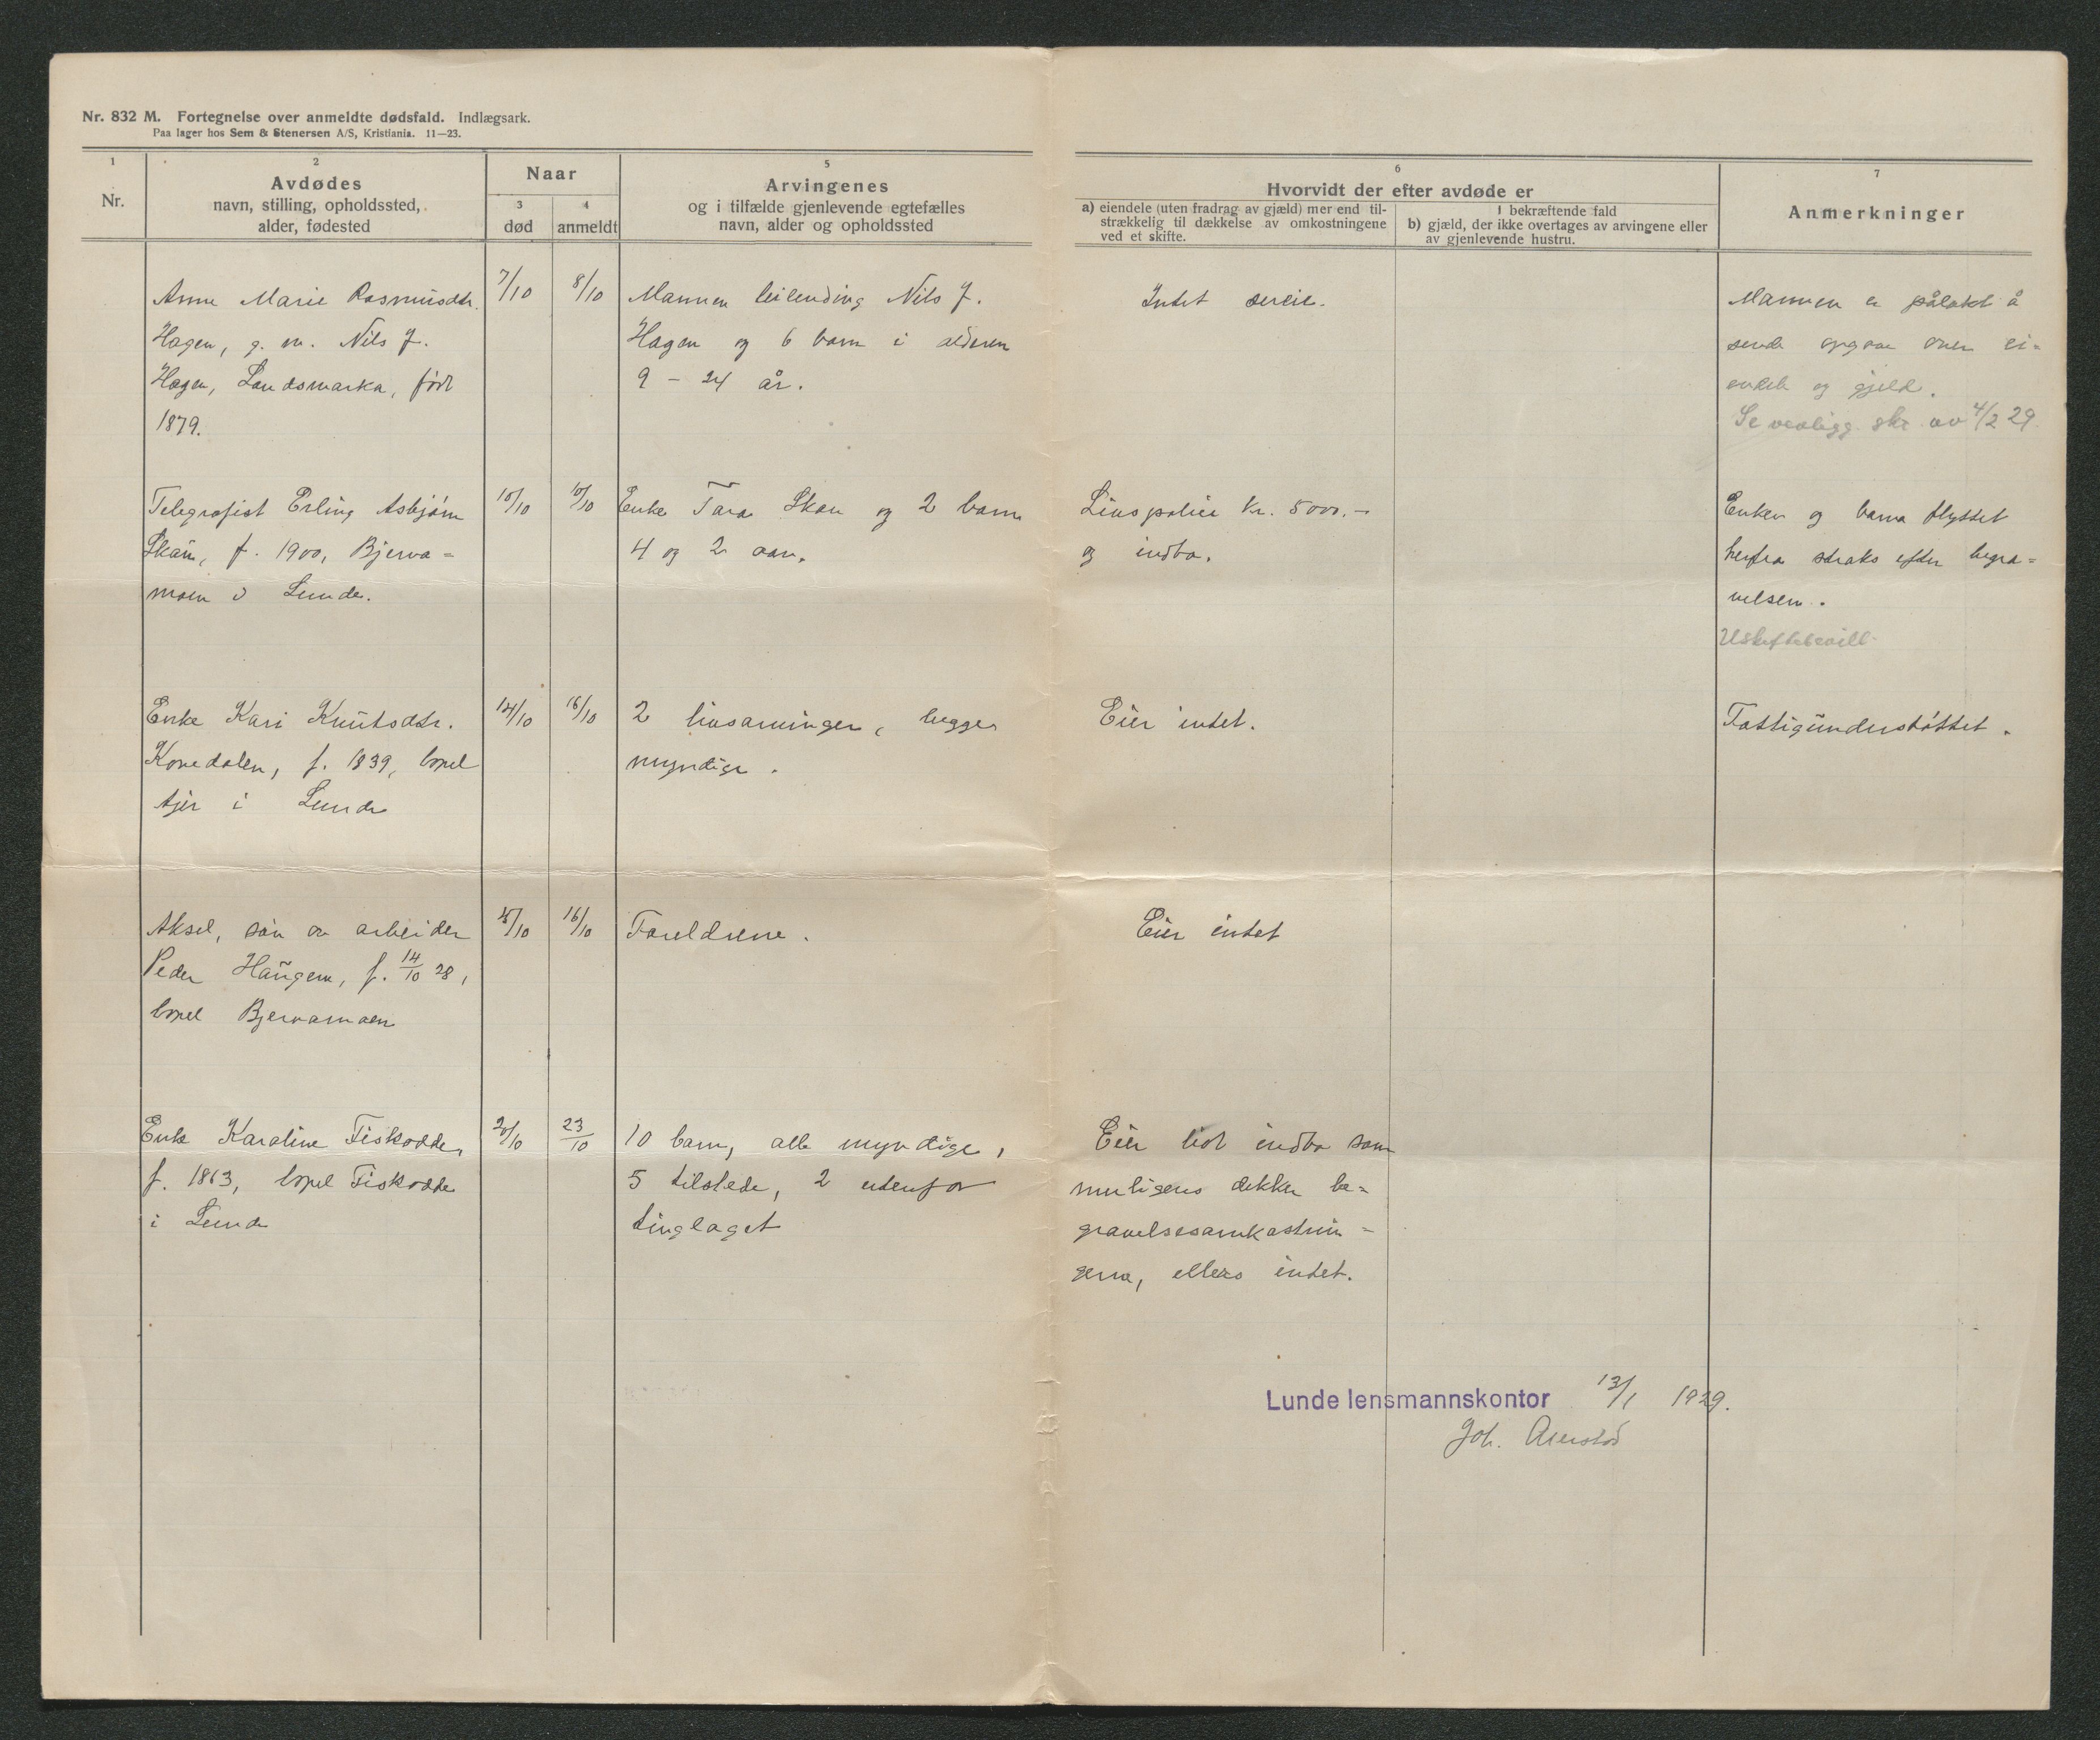 Nr. 832 M. Fortegnelse over anmeldte dødsfald. Indlægsark.
Paa lager hos Sem & Stenersen A/S, Kristiania. 11—23.
1
Nr.
2
Avdødes
navn, stilling, opholdssted,
alder, fødested
Naar
3
død
4
anmeldt
5
Arvingenes
og i tilfælde gjenlevende egtefælles
navn, alder og opholdssted
6
Hvorvidt der efter avdøde er
a) eiendele (uten fradrag av gjæld) mer end til-
strækkelig til dækkelse av omkostningene
ved et skifte.
I bekræftende fald
b) gjæld, der ikke overtages av arvingene eller
av gjenlevende hustru.
7
Anmerkninger
Anne Marie Rasmusdtr.
Hagen, g. m. Nils J.
Hagen, Landsmarka, født
1879.
7/10
8/10
Mannen leilending Nils J.
Hagen og 6 barn i alderen
9 – 24 år.
Intet særeie.
Mannen er pålakt å
sende opgave over ei-
endele og gjeld.
Se vedligg. skr. av 4/2 29.
Telegrafist Erling Asbjørn
Skau, f. 1900, Bjerva-
moen i Lunde.
10/10
Enke Tara Skau og 2 barn
4 og 2 aar.
Livspolice kr. 5000.-
og indbo.
Enken og barna flyttet
herfra straks efter begra-
velsen.
Uskiftebevill.
Enke Kari Knutsdtr.
Kovedalen, f. 1839, bopel
i Lunde
14/10
16/10
2 livsarvinger, begge
myndige.
Eier intet.
Fattigunderstøttet.
Aksel, søn av arbeider
Peder Haugen, f. 14/10 28,
bopel Bjervamoen
15/10
16/10
Foreldrene.
Eier intet
Enke Karoline Fiskodde,
f. 1863, bopel Fiskodde
i Lunde
20/10
23/10
10 barn, alle myndige,
5 tilstede, 2 utenfor
tinglaget
Eier litt indbo som
muligens dekker be-
gravelsesomkostnin-
gene, ellers intet.
Lunde lensmannskontor 13/1 1929.
Joh.